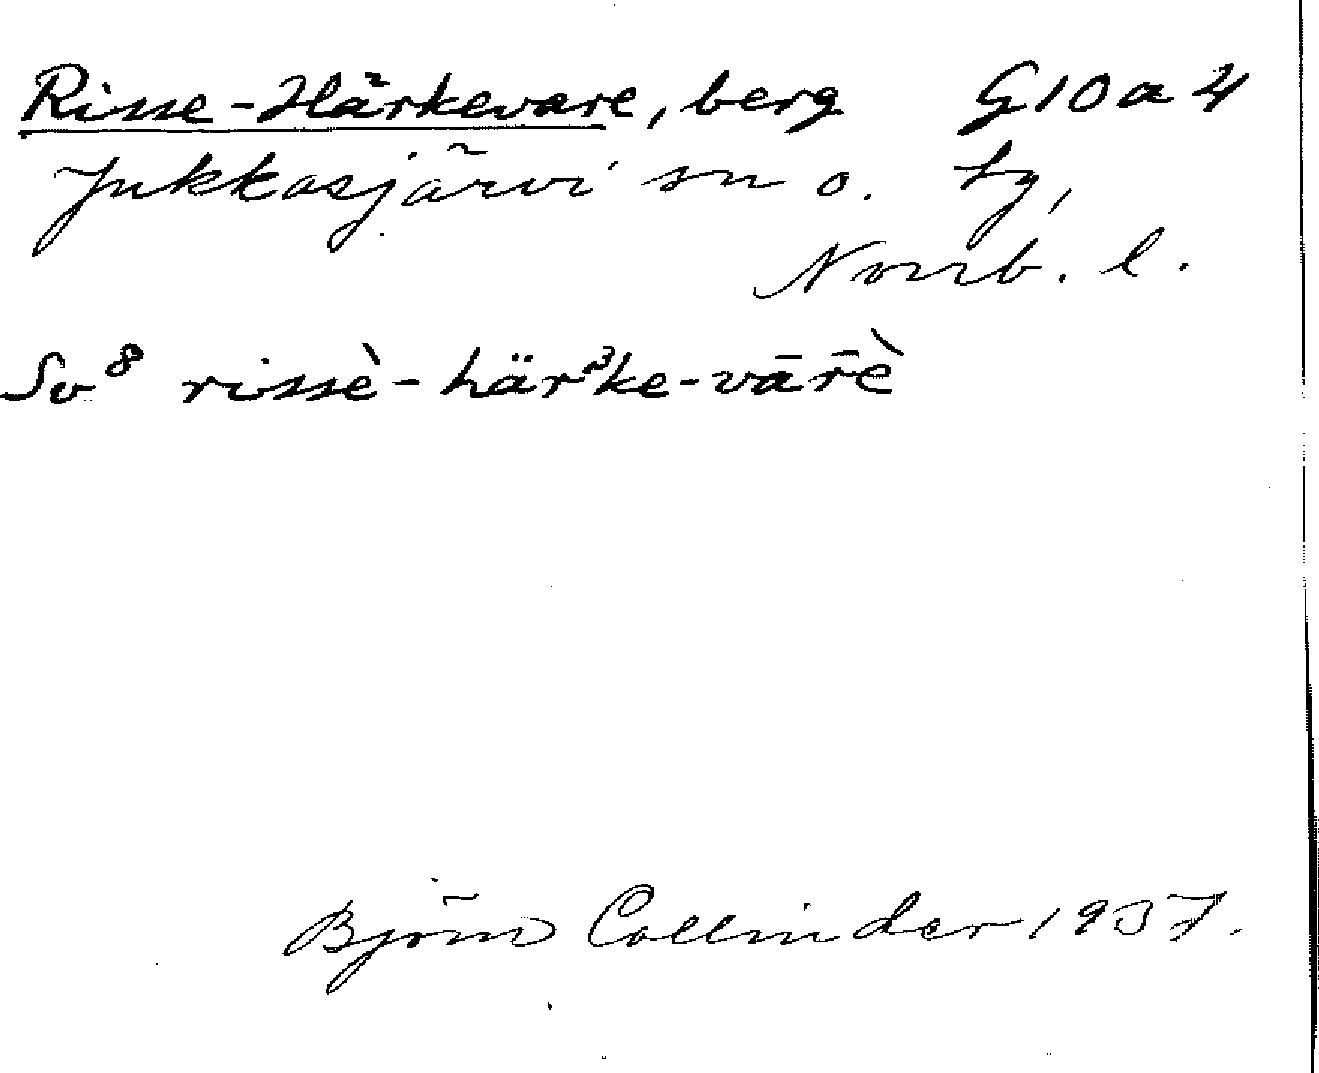 Risse-Härkevare, berg G10a4
Jukkasjärvi sn o. tg,
Norrb. l.
Sv⁸ rissè-här³ke-vārè̄
Björn Collinder 1937.